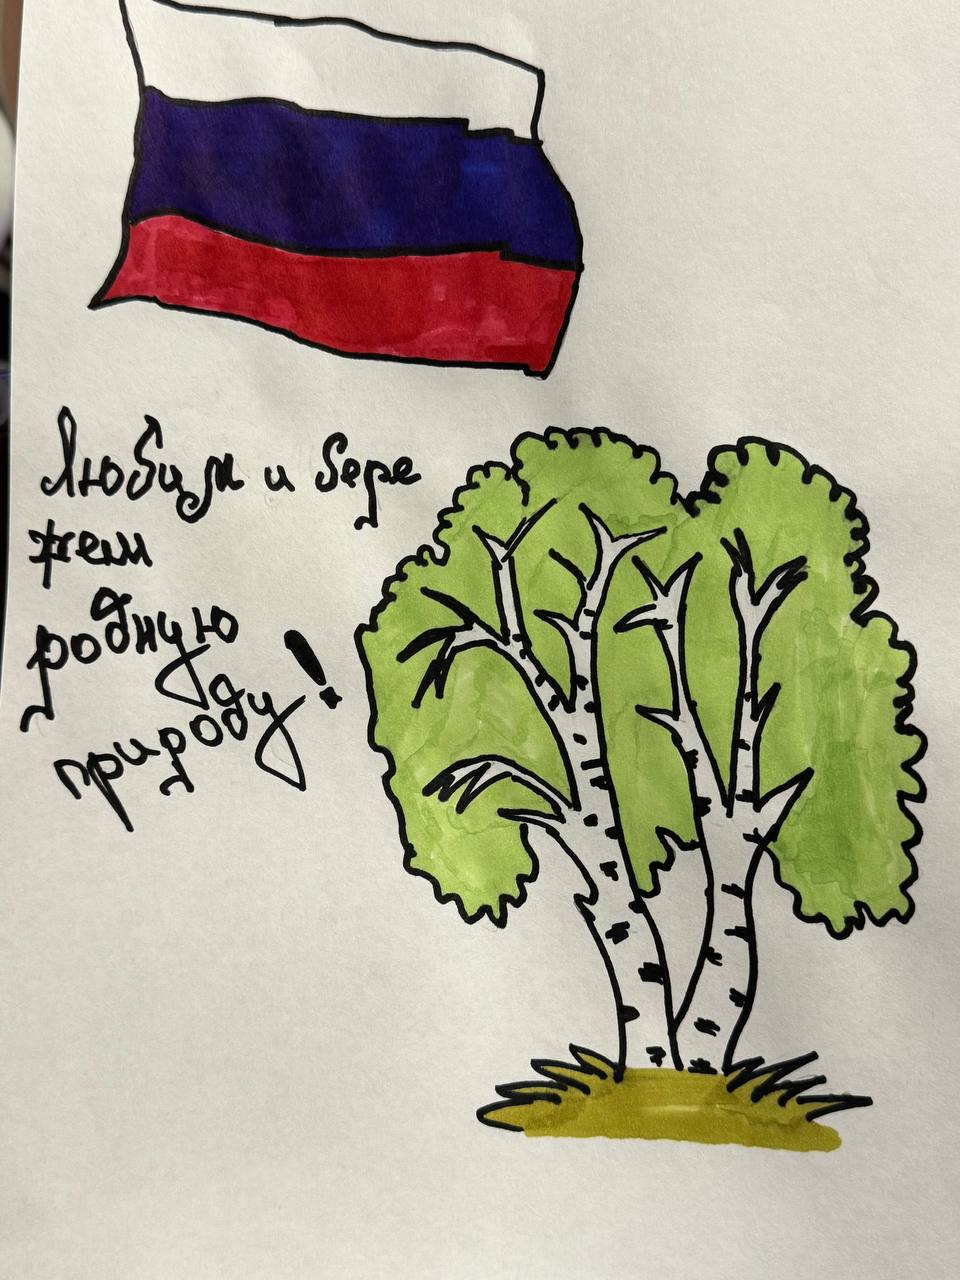 Любим и бере
жем
родную
природу!